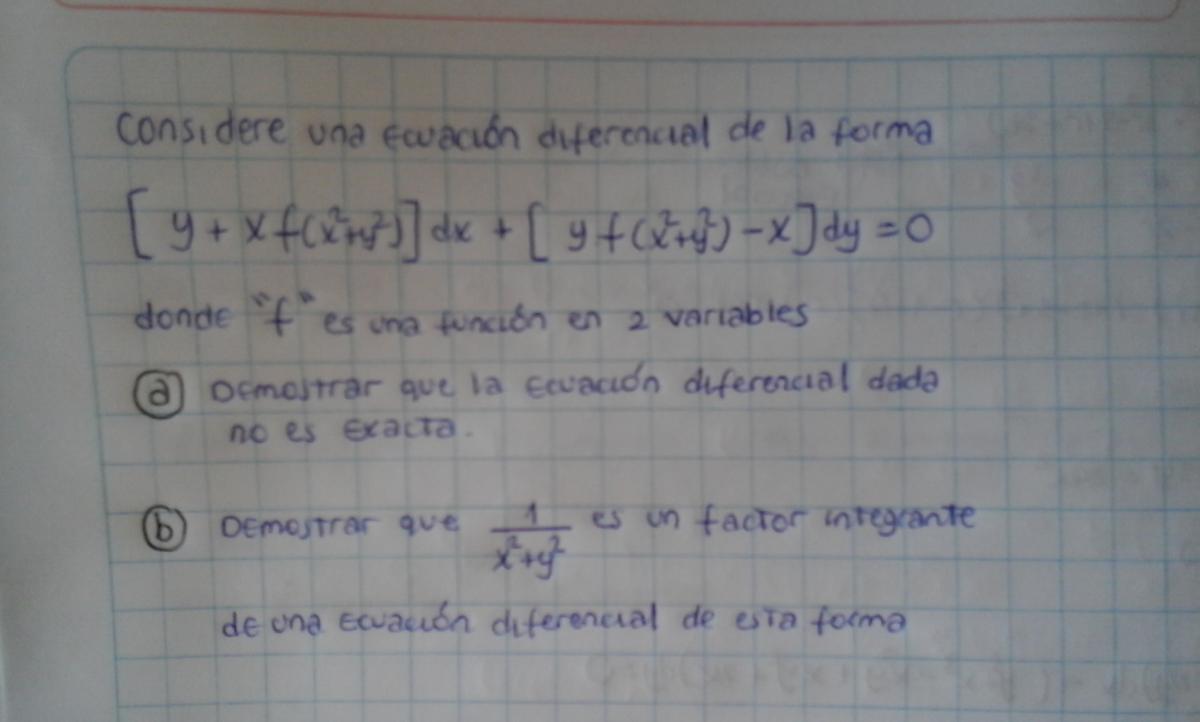 Considere una Ecuación diferencial de la forma
[ y + x f(x²+y²)] dx + [ y f(x²+y²) - x] dy = 0
donde "f" es una función en 2 variables
ⓐ Demostrar que la Ecuación diferencial dada
no es Exacta.
ⓑ Demostrar que 1/(x²+y²) es un factor integrante
de una Ecuación diferencial de esta forma